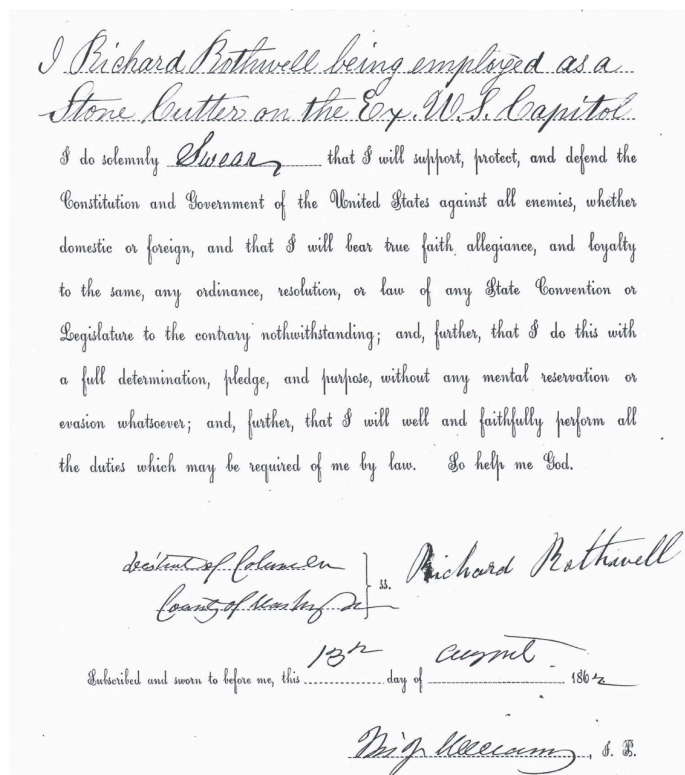 I Richard Rothwell being employed as a
Stone Cutter on the Ex. U.S. Capitol
I do solemnly Swear that I will support, protect, and defend the
Constitution and Government of the United States against all enemies, whether
domestic or foreign, and that I will bear true faith, allegiance, and loyalty
to the same, any ordinance, resolution, or law of any State Convention or
Legislature to the contrary notwithstanding; and, further, that I do this with
a full determination, pledge, and purpose, without any mental reservation or
evasion whatsoever; and, further, that I will well and faithfully perform all
the duties which may be required of me by law. So help me God.
District of Columbia
ss. Richard Rothwell
County of Wash
13th August
Subscribed and sworn to before me, this day of 1862
Williams, J. P.